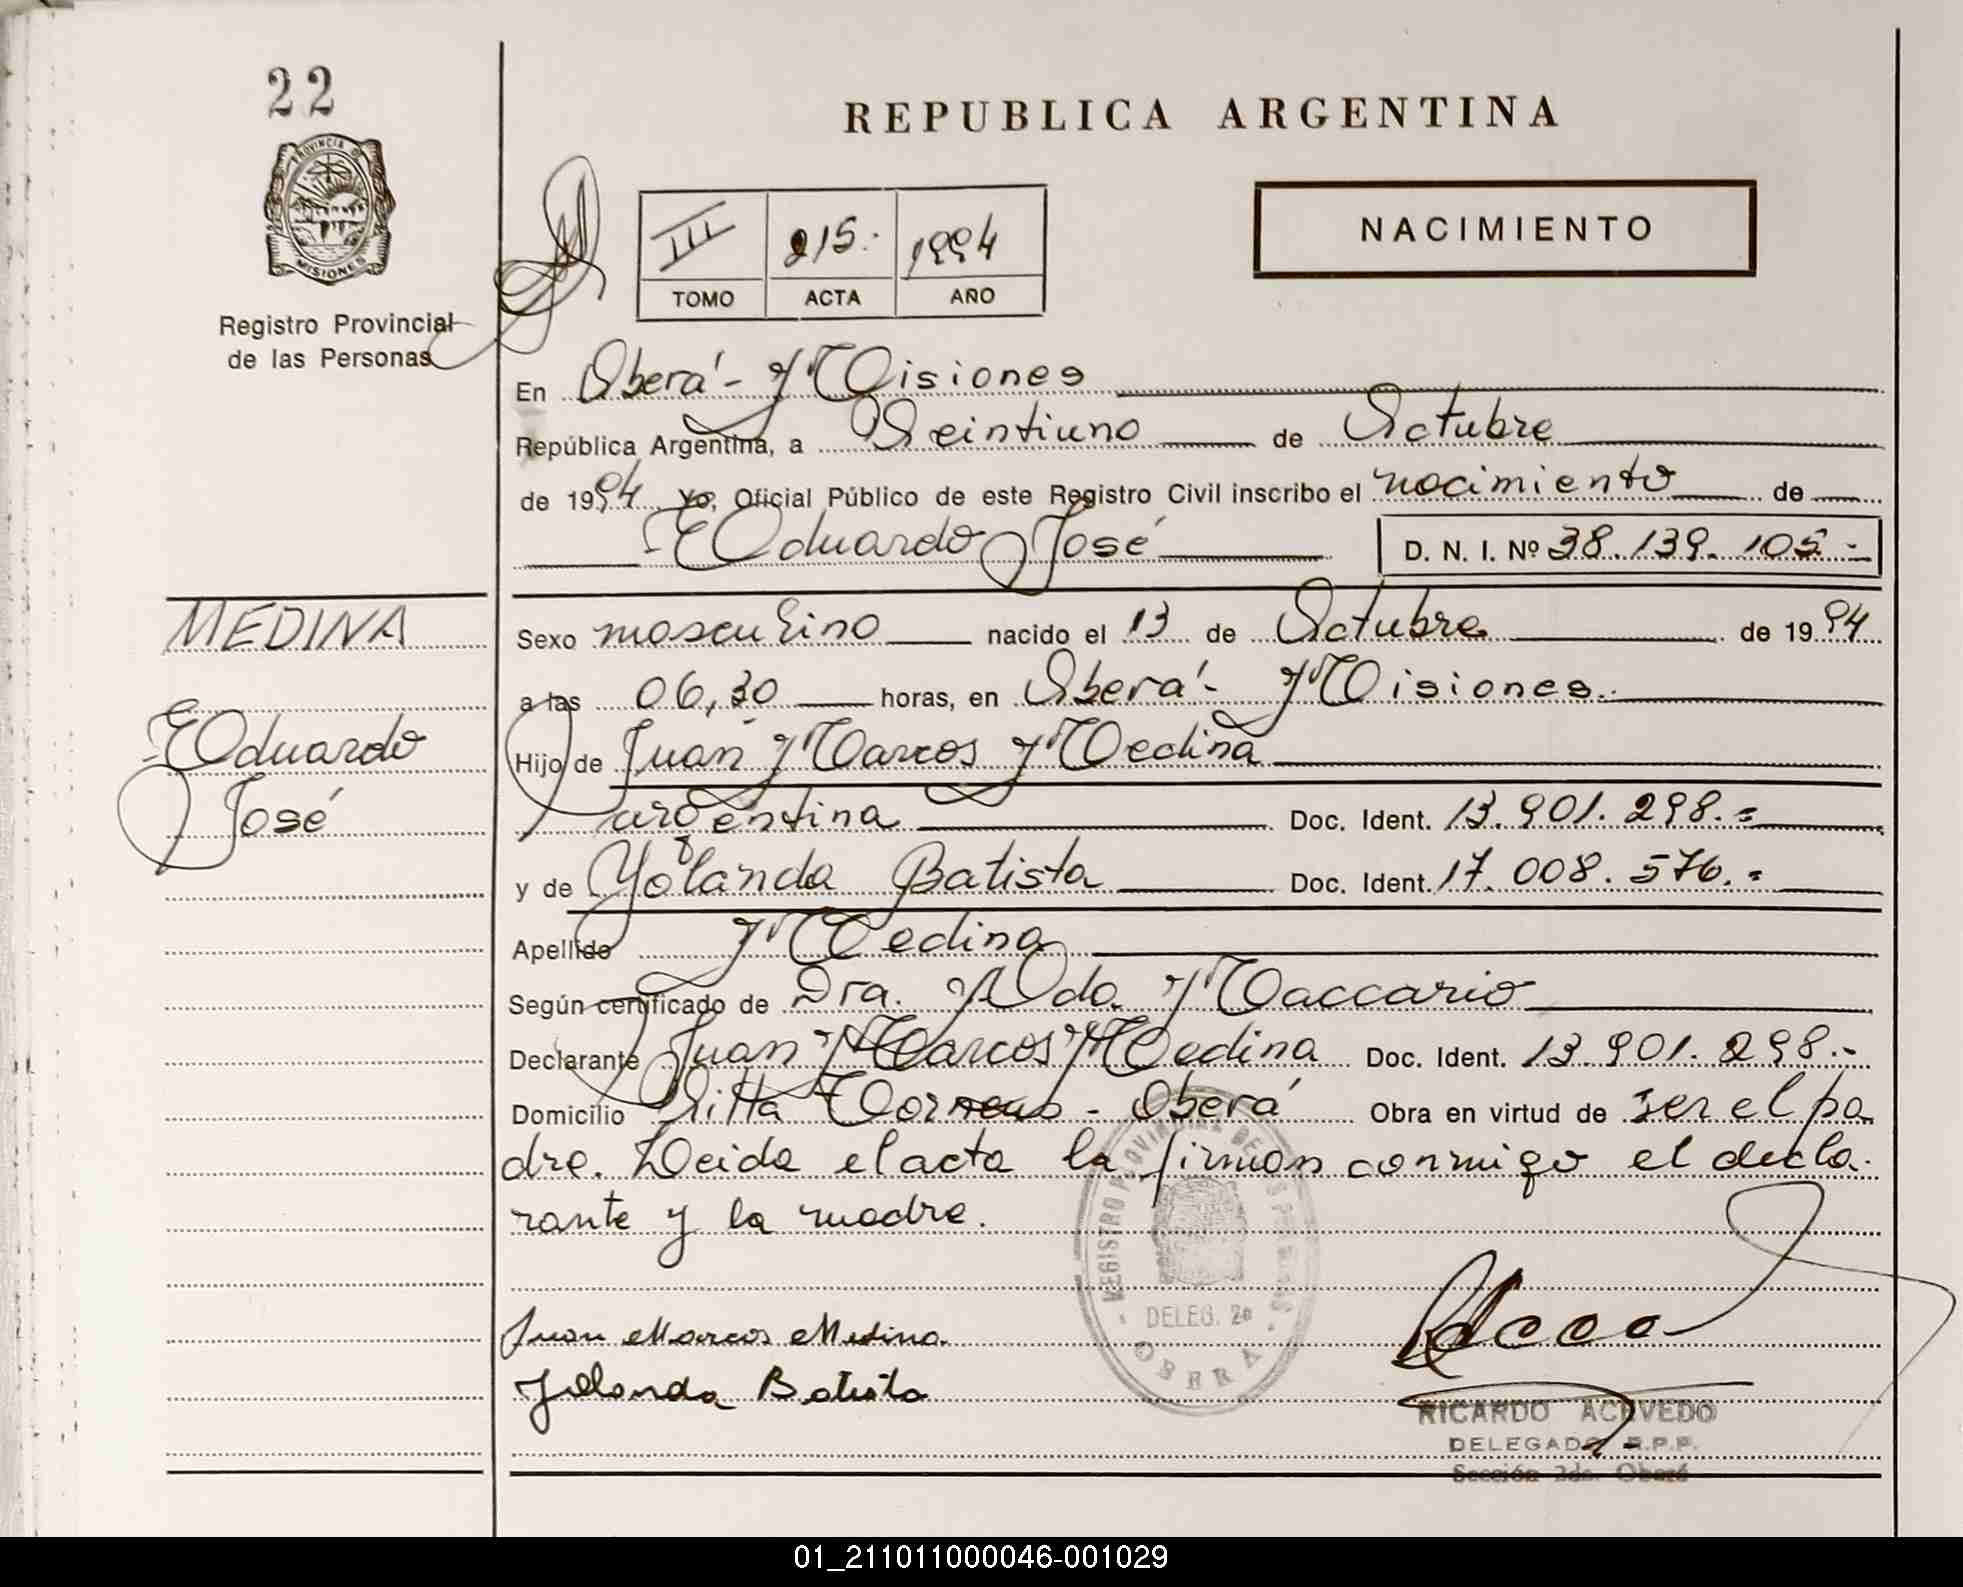 22
REPUBLICA ARGENTINA
PROVINCIA DE
MISIONES
Registro Provincial
de las Personas
III 215. 1994
TOMO ACTA AÑO
NACIMIENTO
En Oberá - Misiones
República Argentina, a Veintiuno de Octubre
de 1994 Yo, Oficial Público de este Registro Civil inscribo el nacimiento de
Eduardo José D. N. I. Nº 38.139.105-
MEDINA
Eduardo
José
Sexo masculino nacido el 13 de Octubre de 1994
a las 06,30 horas, en Oberá - Misiones.
Hijo de Juan Marcos Medina
argentina Doc. Ident. 13.901.298.=
y de Yolanda Batista Doc. Ident. 17.008.576.=
Apellido Medina
Según certificado de Dra. Maccario
Declarante Juan Marcos Medina Doc. Ident. 13.901.298.-
Domicilio Villa - Oberá Obra en virtud de ser el pa
dre. Leida el acta la firman conmigo el decla-
rante y la madre.
REGISTRO PROVINCIAL DE LAS PERSONAS
DELEG. 2a
OBERA
Juan Marcos Medina
Yolanda Batista
RICARDO ACEVEDO
DELEGADO R.P.P.
Sección 2da. Oberá
01_211011000046-001029